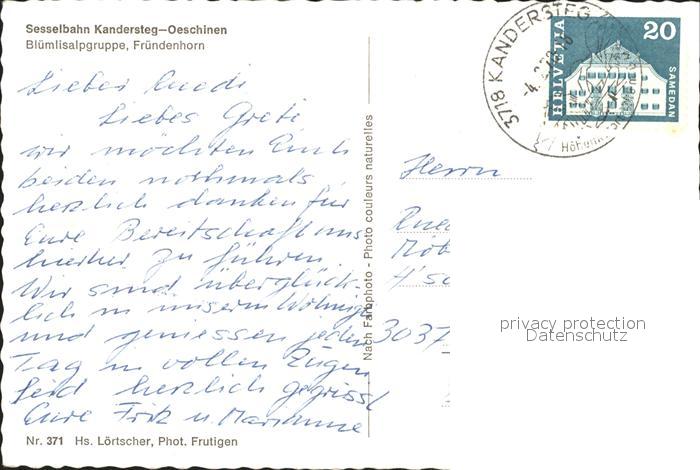 Sesselbahn Kandersteg—Oeschinen
Blümlisalpgruppe, Fründenhorn
Liebes Ruedi
Liebes Greti,
wir möchten Euch
beiden nochmals
herzlich danken für
Eure Bereitschaft uns
hierher zu führen.
Wir sind überglück-
lich in unserm Wohnige
und geniessen jeden
Tag in vollen Zügen
seid herzlich gegrüsst
Eure Fritz u. Marianne
Nr. 371 Hs. Lörtscher, Phot. Frutigen
Nach Farbphoto - Photo couleurs naturelles
3718 KANDERSTEG
HELVETIA
20
SAMEDAN
Herrn
Rue
Möb
3037
privacy protection
Datenschutz